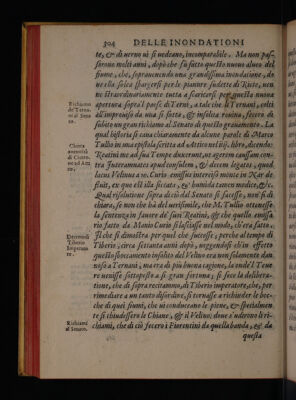 304 DELLE INONDATIONI
te, & di verno vi si vedeano, incomparabile. Ma non pas-
sarono molti anni, dopò che fù fatto questo nuovo alveo del
fiume, che, sopravenendo una grandissima inondatione, do
ve ella solea spargersi per le pianure sudette di Riete, ven
ne straordinariamente tutta a scaricarsi per questa nuova
apertura sopra'l paese di Terni, a tale che li Ternani, colti
all'improviso da una sì fatta, & insolita rovina, fecero di
subito un gran richiamo al Senato di questo gravamento. La
qual historia si cava chiaramente da alcune parole di Marco
Tullio in una epistola scritta ad Attico nel iiij. libro, dicendo:
Reatini me ad sua Tempe duxerunt, ut agerem causam con-
tra Interamnates apud consulem, & decem legatos, quod
lacus Velinus a M. Curio emissus interciso monte in Nar de
fluit, ex quo est illa siccata, & humida tamen modice, &c.
Qual risolutione sopra di ciò dal Senato si facesse, non si di
chiara, se non che hà del verisimile, che M. Tullio ottenesse
la sentenza in favore de' suoi Reatini, & che quello emissa
rio fatto da Manio Curio si lasciasse nel modo, ch'era fatto.
Il che si dimostra per quel che successe, perche al tempo di
Tiberio, circa settanta anni dopò, veggendosi ch'in effetto
questo sboccamento insolito del Velino era non solamente dan
noso a Ternani, ma era di più buona cagione, la onde'l Teve
re venisse sottoposto a sì gran fortuna; si fece la delibera-
tione, che di sopra recitammo, di Tiberio imperatore, che, per
rimediare a un tanto disordine, si tornasse a richieder le boc-
che di quei fiumi, che vi conduceano le piene, & spetialmen
te si chiudessero le Chiane, & il Velino; dove s'udirono li ri-
chiami, che di ciò fecero i Fiorentini da quella banda, & da
questa
Richiamo
de' Terna-
ni al Sena
to.
Chiara
autorità
di Cicero-
ne ad Atti
co.
Decreto di
Tiberio
Imperato
re.
Richiami
al Senato.